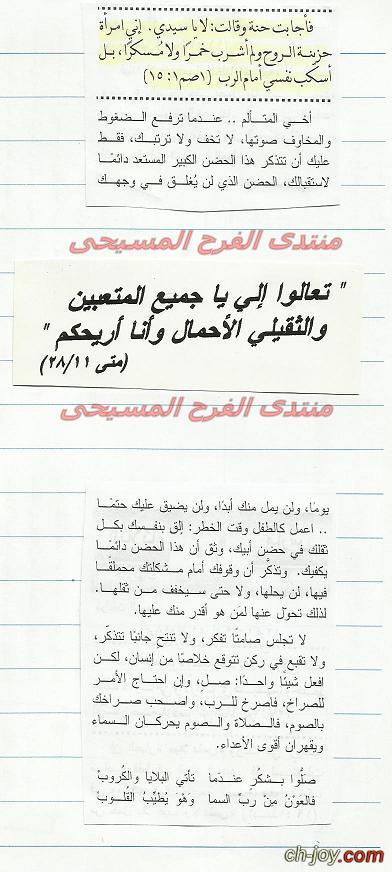 فأجابت حنة وقالت: لا يا سيدي. إني امرأة
حزينة الروح ولم أشرب خمرًا ولا مُسكرًا، بل
أسكب نفسي أمام الرب (١صم١: ١٥)
أخي المتألم .. عندما ترفع الضغوط
والمخاوف صوتها، لا تخف ولا ترتبك، فقط
عليك أن تتذكر هذا الحضن الكبير المستعد دائمًا
لاستقبالك، الحضن الذي لن يُغلق في وجهك
منتدى الفرح المسيحى
" تعالوا إلي يا جميع المتعبين
والثقيلي الأحمال وأنا أريحكم "
(متى ٢٨/١١)
منتدى الفرح المسيحى
يومًا، ولن يمل منك أبدًا، ولن يضيق عليك حتمًا
.. اعمل كالطفل وقت الخطر: إلق بنفسك بكل
ثقلك في حضن أبيك، وثق أن هذا الحضن دائمًا
يكفيك. وتذكَّر أن وقوفك أمام مشكلتك محملقًا
فيها، لن يحلها، ولا حتى سيخفف من ثقلها.
لذلك تحوَّل عنها لمَن هو أقدر منك عليها.
لا تجلس صامتًا تفكر، ولا تنتحِ جانبًا تتذكَّر،
ولا تقبع في ركن تتوقع خلاصًا من إنسان، لكن
افعل شيئًا واحدًا: صلِ، وإن احتاج الأمر
للصراخ، فاصرخ للرب، واصحب صراخك
بالصوم، فالصلاة والصوم يحركان السماء
ويقهران أقوى الأعداء.
صَلُّوا بشكرٍ عندمَا تأتي البلايا والكُروبْ
فالعَوْن مِنْ ربِّ السما وَهْوَ يُطيِّبُ القُلوبْ
ch-joy.com